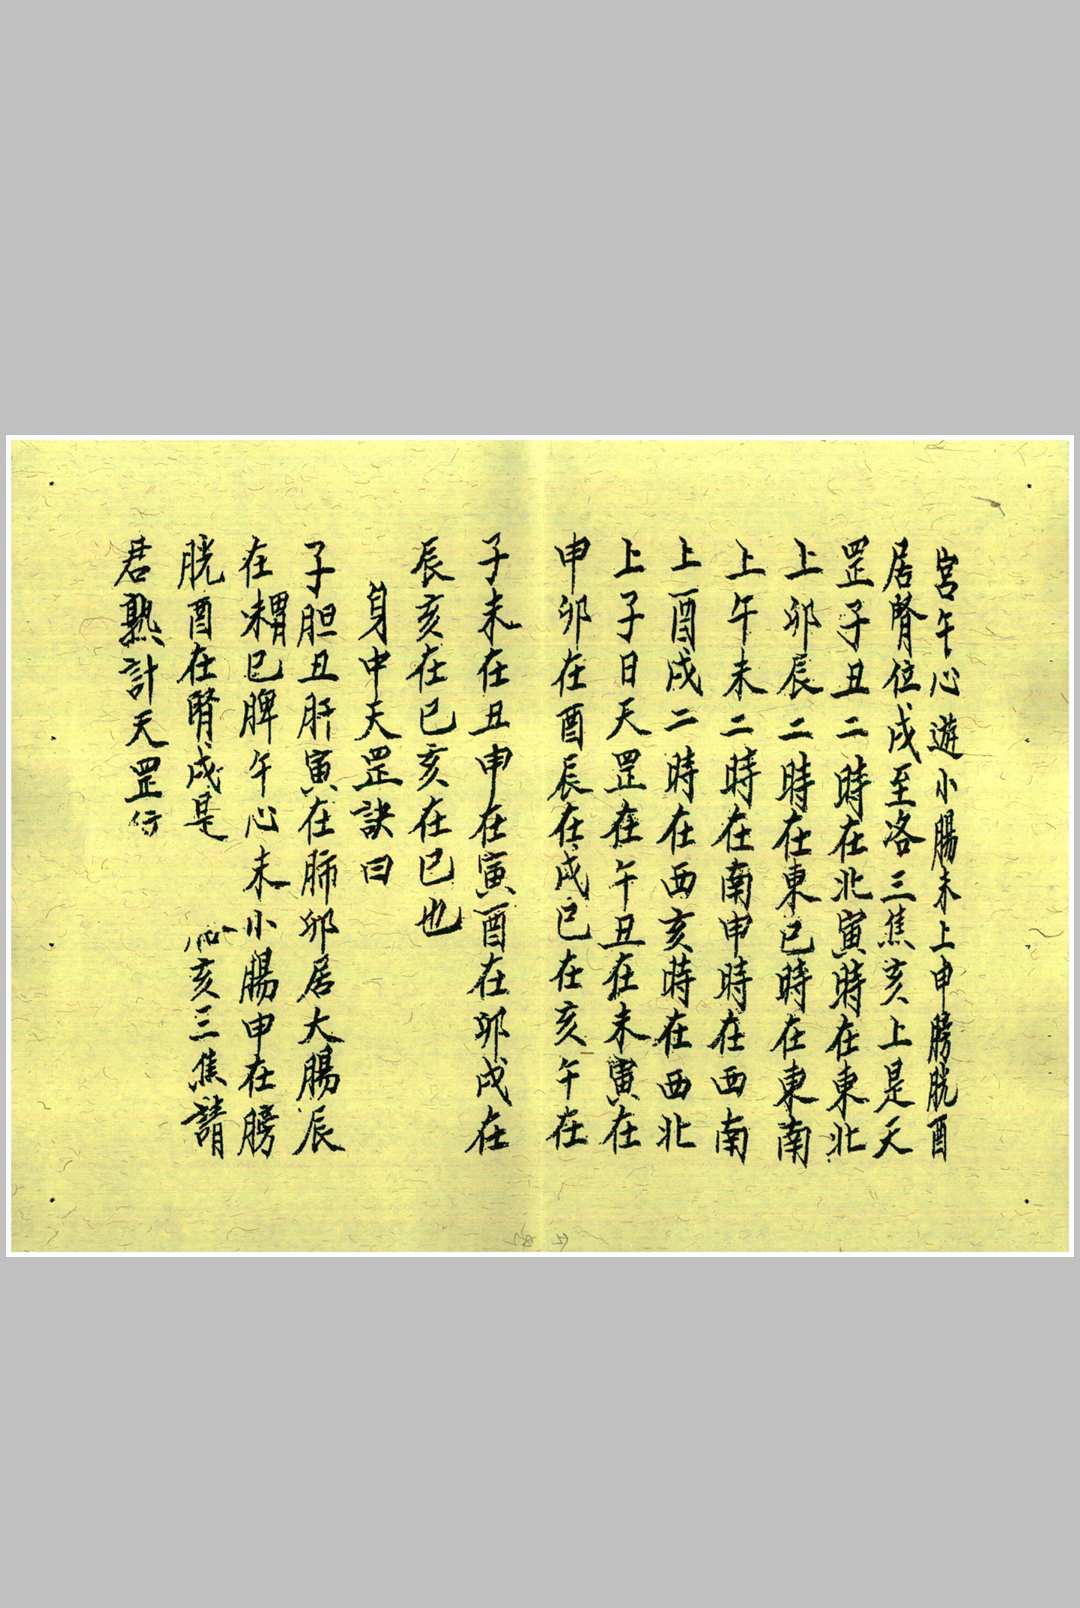 宮午心遊小腸未上申膀胱酉
居腎位戌至咯三焦亥上是天
罡子丑二時在北寅時在東北
上卯辰二時在東巳時在東南
上午未二時在南申時在西南
上酉戌二時在西亥時在西北
上子日天罡在午丑在未寅在
申卯在酉辰在戌巳在亥午在
子未在丑申在寅酉在卯戌在
辰亥在巳亥在巳也
身中天罡訣曰
子胆丑肝寅在肺卯居大腸辰
在胃巳脾午心未小腸申在膀
胱酉在腎戌是心亥三焦請
君熟計天罡行